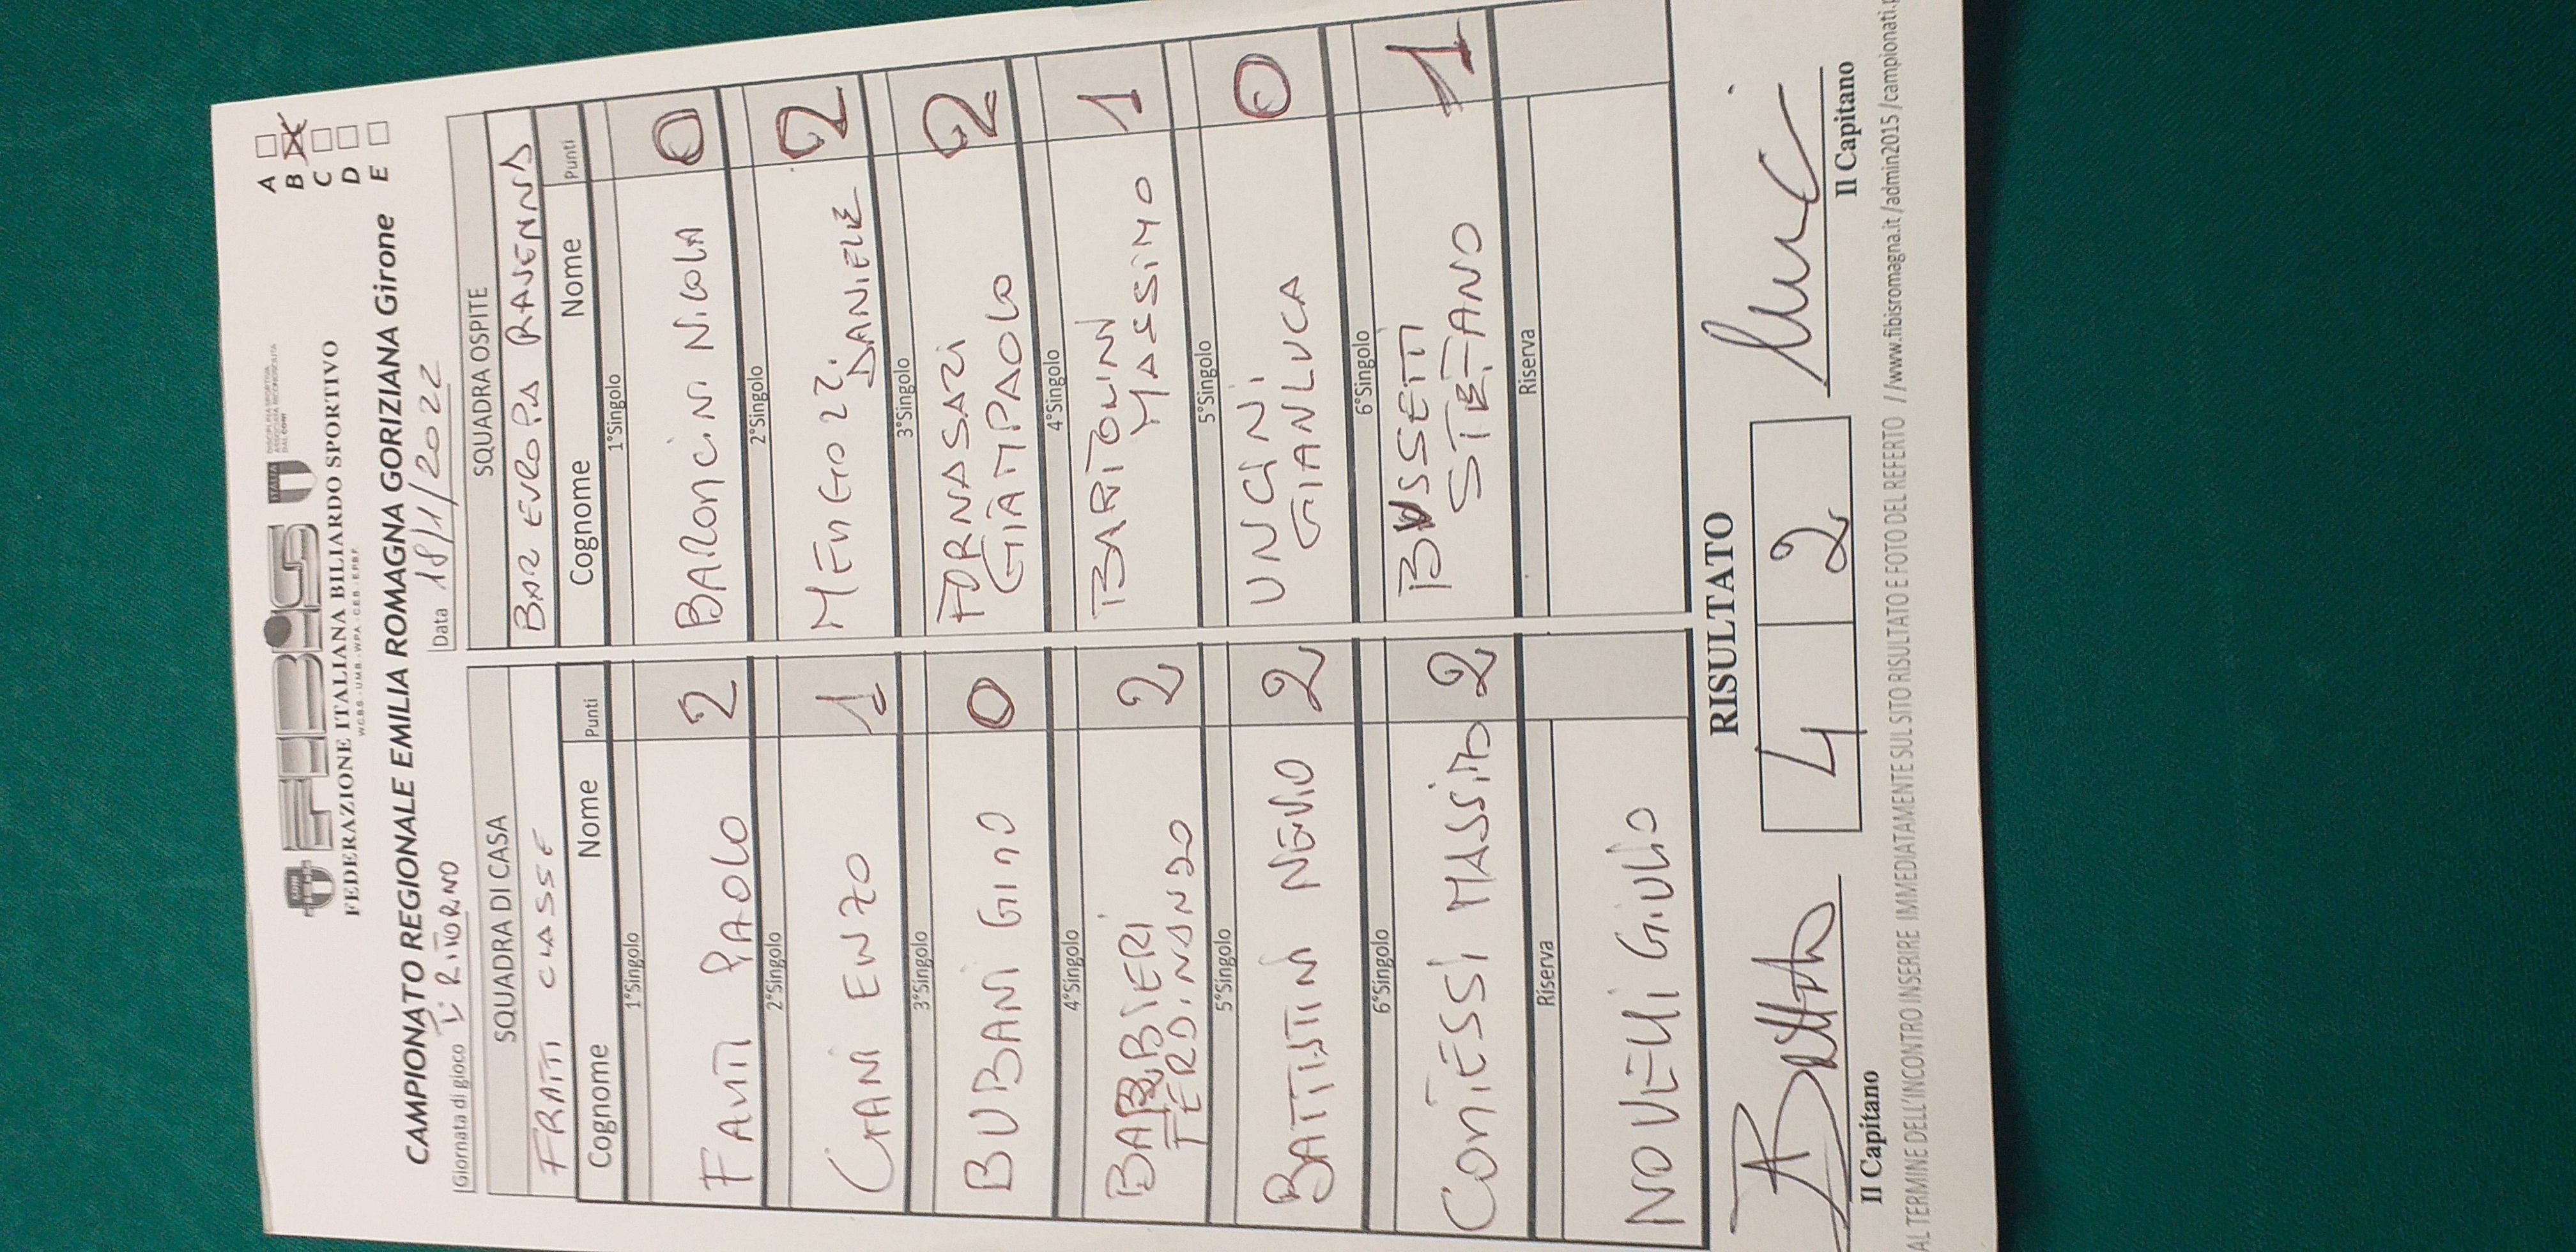 FIBIS
ITALIA
CONI
FEDERAZIONE ITALIANA BILIARDO SPORTIVO
CAMPIONATO REGIONALE EMILIA ROMAGNA GORIZIANA Girone
A
B
C
D
E
Giornata di gioco RITORNO
Data 18/1/2022
SQUADRA DI CASA
FRATTI CLASSE
Cognome Nome Punti
1°Singolo
FANTI PAOLO 2
2°Singolo
GANI ENZO 1
3°Singolo
BUBANI GINO 0
4°Singolo
BARBIERI
FERDINANDO 2
5°Singolo
BATTISTINI NEVIO 2
6°Singolo
CONTESSI MASSIMO 2
Riserva
NOVELLI GIULIO
SQUADRA OSPITE
BAR EUROPA RAVENNA
Cognome Nome Punti
1°Singolo
BARONCINI NICOLA 0
2°Singolo
MENGOZZI
DANIELE 2
3°Singolo
FORNASARI
GIAMPAOLO 2
4°Singolo
BARTOLINI
MASSIMO 1
5°Singolo
UNCINI
GIANLUCA 0
6°Singolo
BUSSETTI
STEFANO 1
Riserva
RISULTATO
4 2
Il Capitano
Il Capitano
AL TERMINE DELL'INCONTRO INSERIRE IMMEDIATAMENTE SUL SITO RISULTATO E FOTO DEL REFERTO //www.fibisromagna.it/admin2015/campionati.p